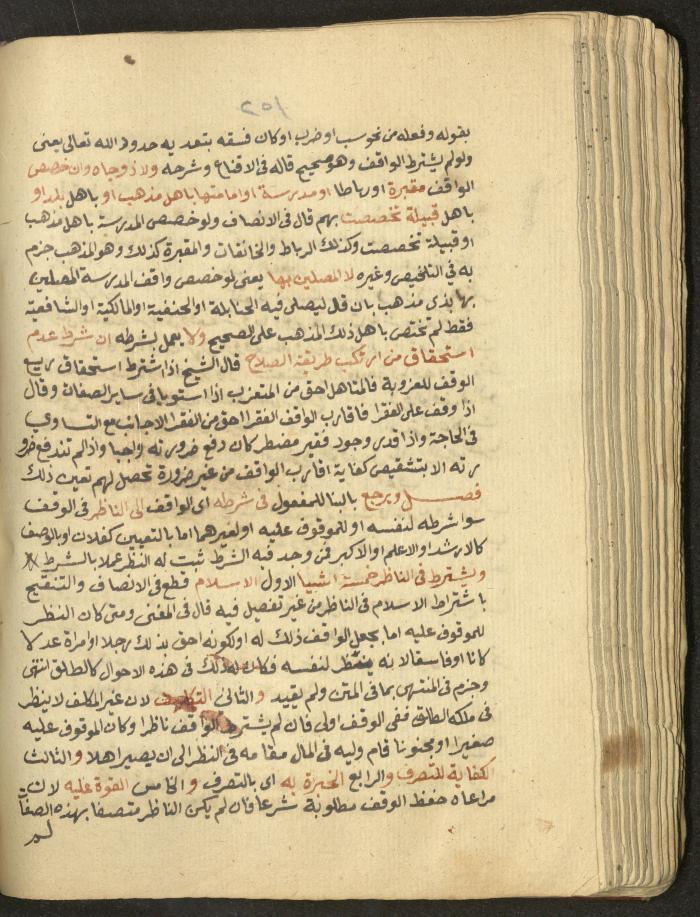 ٢٥١
بقوله وفعله من نحو سب او ضرب او كان فسقه بتعديه حدود الله تعالى يعنى
ولو لم يشترط الواقف وهو صحيح قاله فى الاقناع وشرحه ولا ذو جاه وان خصص
الواقف مقبرة او رباطا او مدرسة او امامتها باهل مذهب او باهل بلد او
باهل قبيلة تخصصت بهم قال فى الانصاف ولو خصص المدرسة باهل مذهب
او قبيلة تخصصت وكذلك الرباط والخانقات والمقبرة كذلك وهو المذهب جزم
به فى التلخيص وغيره لا المصلين بها يعنى لو خصص واقف المدرسة المصلين
بها بذى مذهب بان قال ليصلى فيه الحنابلة او الحنفية او المالكية او الشافعية
فقط لم تختص باهل ذلك المذهب على الصحيح ولا يعمل بشرطه ان شرط عدم
استحقاق من ارتكب طريقة الصلاح قال الشيخ اذا اشترط استحقاق ريع
الوقف للعزوبة فالمتاهل احق من المتعزب اذا استويا فى ساير الصفات وقال
اذا وقف على الفقرا فاقارب الواقف الفقرا احق من الفقرا الاجانب مع التساوي
فى الحاجة واذا قدر وجود فقير مضطر كان دفع ضرورته واجبا واذا لم تندفع ضرو
رته الا بتنقيص كفاية اقارب الواقف من غير ضرورة تحصل لهم تعين ذلك
فصل ويرجع بالبنا للمفعول فى شرطه اى الواقف الى الناظر فى الوقف
سوا شرطه لنفسه او للموقوف عليه او لغيرهما اما بالتعيين كفلان او بالوصف
كالارشد او الاعلم او الاكبر فمن وجد فيه الشرط ثبت له النظر عملا بالشرط
ويشترط فى الناظر خمسة اشيا الاول الاسلام قطع فى الانصاف والتنقيح
باشتراط الاسلام فى الناظر من غير تفصيل فيه قال فى المغنى ومتى كان النظر
للموقوف عليه اما بجعل الواقف ذلك له او لكونه احق بذلك رجلا او امراة عدلا
كانا او فاسقا لانه ينظر لنفسه فكان له ذلك فى هذه الاحوال كالطلق انتهى
وجزم فى المنتهى بما فى المتن ولم يقيد والثانى التكليف لان غير المكلف لا ينظر
فى ملكه الطلق ففى الوقف اولى فان لم يشترط الواقف ناظرا وكان الموقوف عليه
صغيرا او مجنونا قام وليه فى المال مقامه فى النظر الى ان يصير اهلا والثالث
الكفاية للتصرف والرابع الخبرة به اى بالتصرف والخامس القوة عليه لان
مراعاة حفظ الوقف مطلوبة شرعا فان لم يكن الناظر متصفا بهذه الصفات
لم